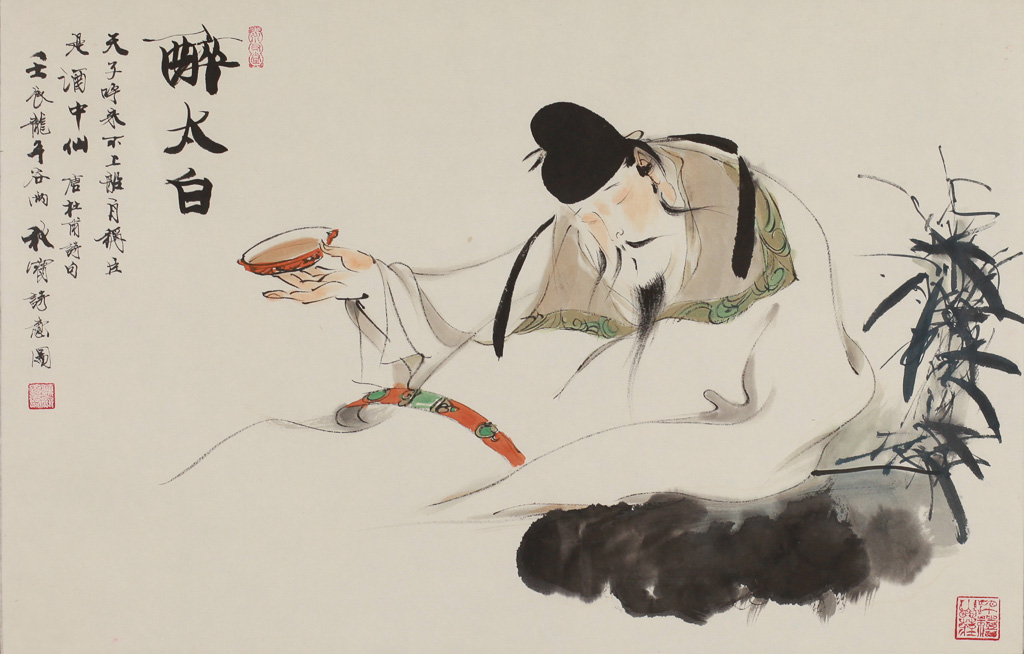 醉太白
天子呼来不上船自稱臣
是酒中仙唐杜甫詩句
壬辰龍年谷雨秋詩意圖